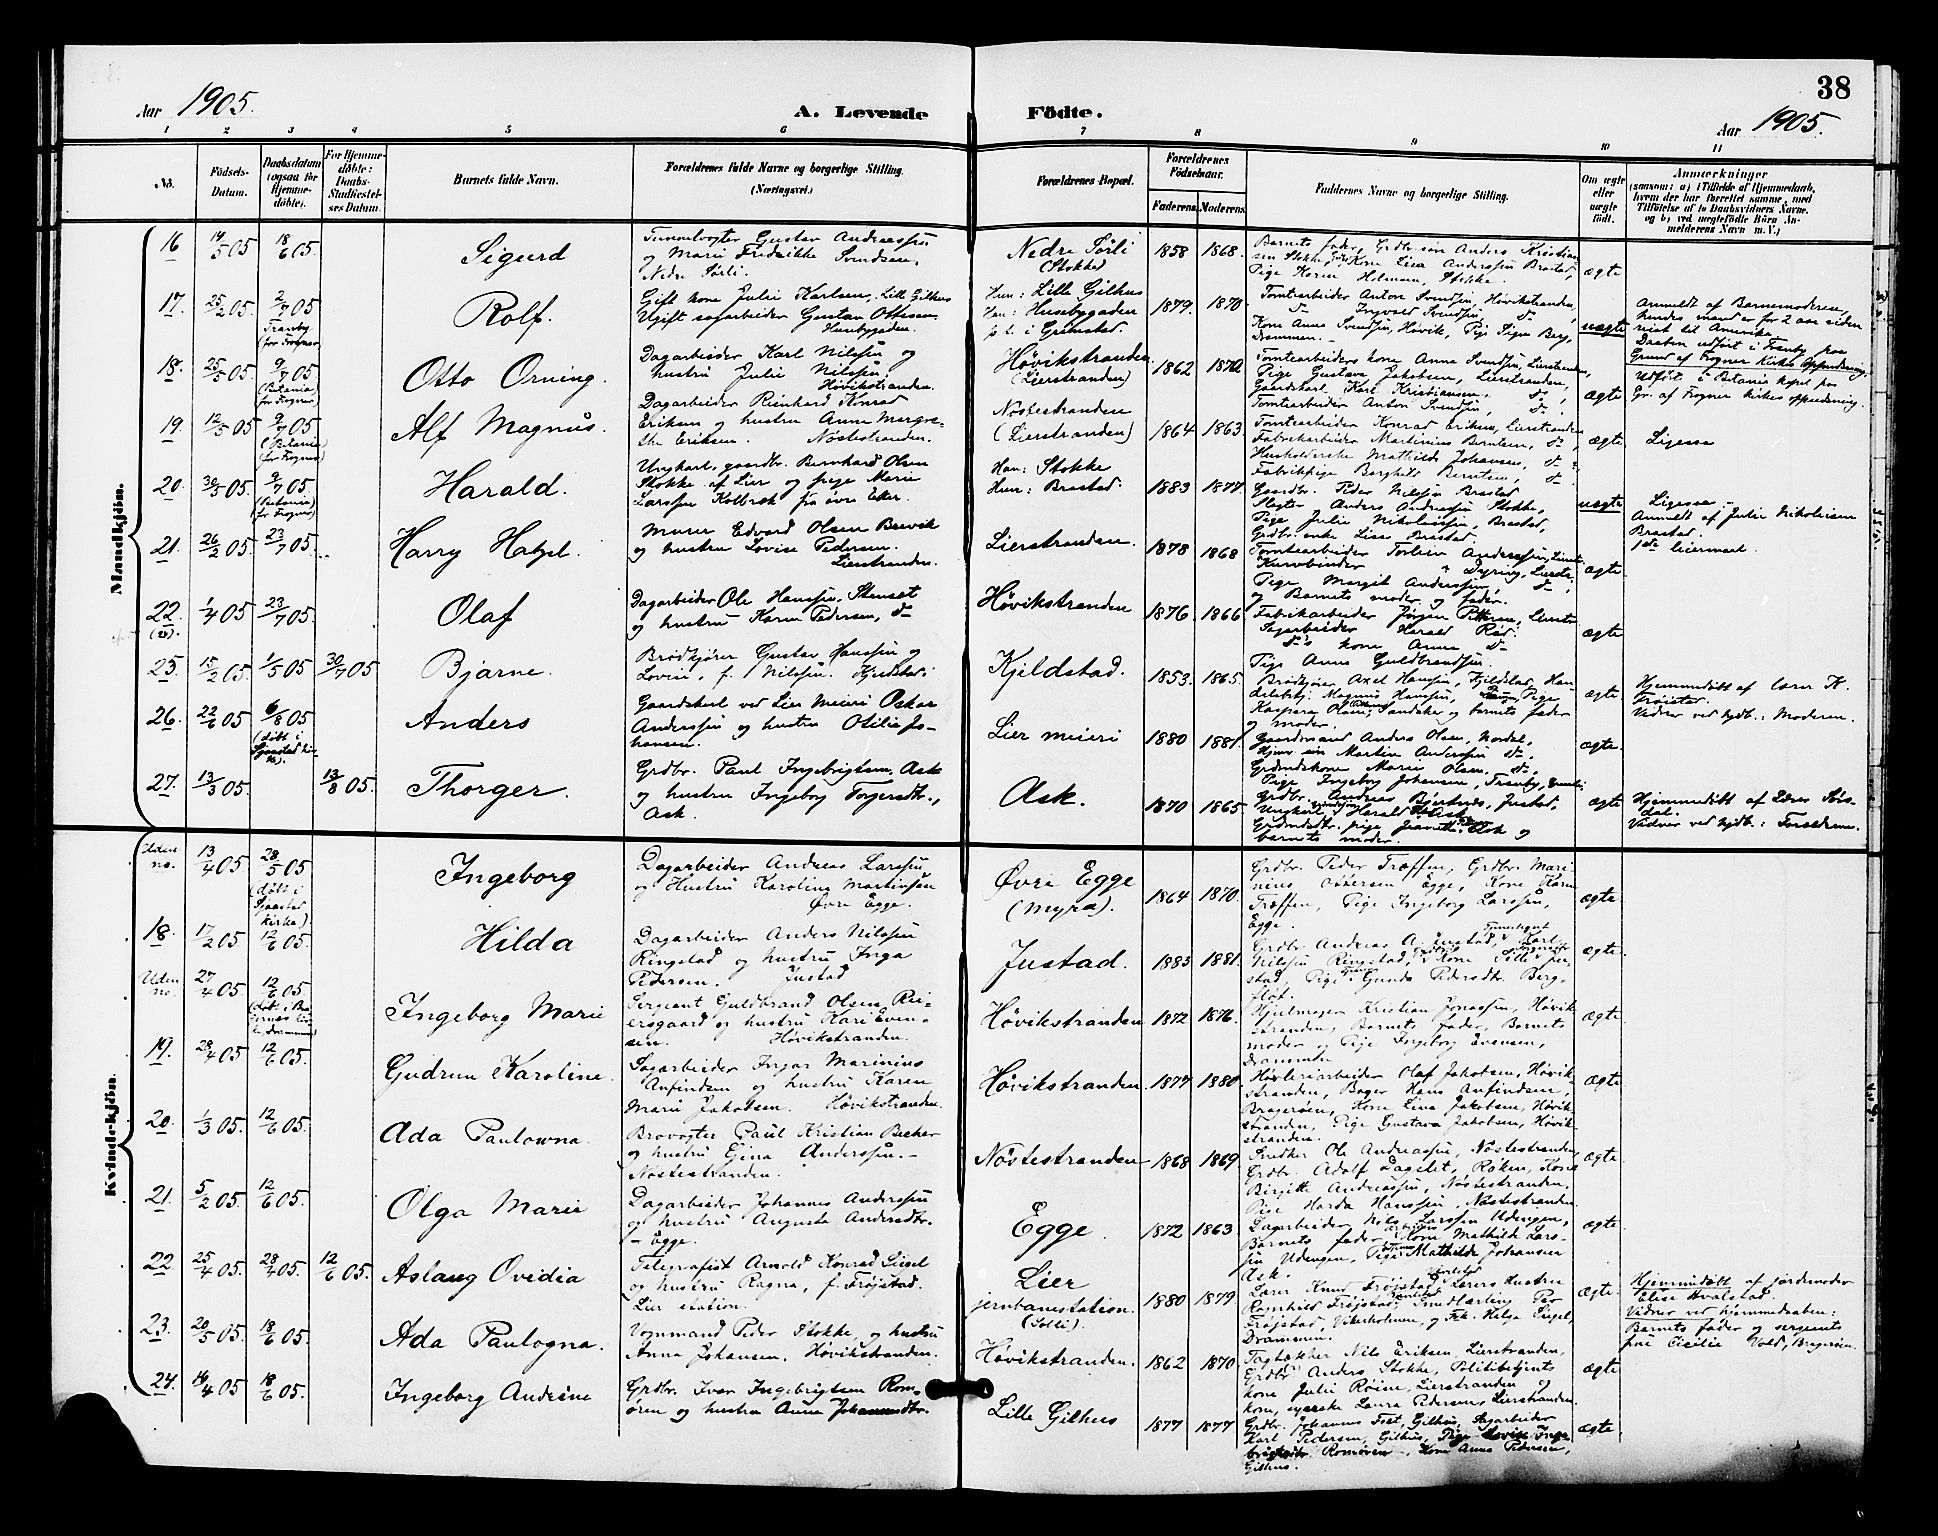 38
Aar 1905.
A. Levende Födte.
Aar 1905.
1 2 3 4 5 6 7 8 9 10 11
No.
Födsels-Datum.
Daabsdatum (ogsaa for Hjemme-döbte).
For Hjemme-döbte: Daabs-Stadfæstel-ses Datum.
Barnets fulde Navn.
Forældrenes fulde Navne og borgerlige Stilling.
(Næringsvei.)
Forældrenes Bopæl.
Forældrenes Födselsaar.
Faderens. Moderens.
Faddernes Navne og borgerlige Stilling.
Om ægte eller uægte födt.
Anmærkninger
(saasom: a) i Tilfælde af Hjemmedaab,
hvem der har forrettet samme, med
Tilföielse af to Daabsvidners Navne,
og b) ved uægtefödte Börn An-
melderens Navn m. V.)
Mandkjön.
16 14/5 05 18/6 05 Sigurd
Tunnelvogter Gustav Andreassen
og Marie Fredrikke Svendsen,
Nedre Sørli.
Nedre Sørli
(Stokke)
1858 1868.
Barnets fader, Grdbr. søn Anders Kristian-
sen Stokke, Kone Lier Anderssen Brastad,
Pige Karen Helmen, Stokke.
ægte
17. 25/2 05. 2/7 05 (Tranby for Frogner) Rolf.
Gift kone Julie Karlsen, Lille Gilhus
Ugift sagarbeider Gustav Ottesen
Husebygaden.
Hun: Lille Gilhus
Han: Husebygaden
p. t. i Grimstad.
1879. 1870.
Tomtearbeider Anton Svendsen, Høvikstranden,
do Ingvald Svendsen, do
Kone Anna Svendsen, Høvik, Pige Signe Berg,
Drammen.
uægte
Anmeldt af Barnemoderen,
hendes mand er for 2 aar siden
reist til Amerika.
Daaben udført i Tranby paa
Grund af Frogner Kirkes oppudsning.
18. 25/5 05 9/7 05 (Betania for Frogner) Otto Orning.
Dagarbeider Karl Nilssen og
hustru Julie Nilssen,
Høvikstranden.
Høvikstranden
(Lierstranden)
1862 1872
Tomtearbeiders kone Anna Svendsen, Lierstranden,
Pige Gustava Jakobsen, Lierstranden,
Gaardskarl Karl Kristiansen, do,
Tomtearbeider Anton Svendsen, do.
ægte
Udført i Betania kapel paa
Gr. af Frogner Kirkes oppudsning.
19 12/5 05 9/7 05 (Betania for Frogner) Alf Magnus.
Dagarbeider Reinhard Konrad
Eriksen og hustru Anne Margre-
the Eriksen. Nøstestranden.
Nøstestranden
(Lierstranden)
1864 1863.
Tomtearbeider Konrad Eriksen, Lierstranden
Fabrikarbeider Martinius Berntsen, do
Husholderske Mathilde Johansen, do
Fabrikpige Borghild Berntsen, do.
ægte.
Ligesaa
20. 30/5 05 9/7 05 (Betania for Frogner) Harald.
Ungkarl, gaardbr. Bernhard Olsen
Stokke af Lier og pige Marie
Larssen Kolbræk fra øvre Eker.
Han: Stokke
Hun: Brastad:
1883 1877.
Gaardbr. Peder Nilssen Brastad
Slagter Anders Andreassen Stokke,
Pige Julie Nikolaisen, Brastad,
Grdbr. enke Lise Brastad.
uægte
Ligesaa –
Anmeldt af Julie Nikolaisen
Brastad.
1ste leiermaal.
21. 26/2 05. 23/7 05 Harry Hatzel.
Murer Edvard Olsen Brevik
og hustru Lovise Pedersen.
Lierstranden.
Lierstranden.
1878 1868
Tomtearbeider Torleiv Anderssen, Lierstr
Kurvbinder Dyring, Lierstr,
Pige Margit Anderssen, do,
og Barnets moder og fader.
ægte.
22. (28). 1/4 05 23/7 05. Olaf
Dagarbeider Ole Hanssen, Stenset
og hustru Karen Pedersen, do
Høvikstranden
1876 1866
Fabrikarbeider Jørgen Pettersen, Lierstr
Sagarbeider Harald Rød
do's kone Anna do
Pige Anna Guldbrandsen.
ægte
25. 15/2 05. 1/5 05 30/7 05 Bjarne.
Brødkjører Gustav Hanssen og
Lovise, f. Nilssen. Kjeldstad.
Kjeldstad.
1853. 1865.
Brødkjører Axel Hanssen, Kjeldstad, Han-
delsbetj. Magnus Hanssen, Pige
Kaspara Olsen, Landaker og barnets fader
og moder.
ægte
Hjemmedøbt af lærer K.
Frøistad.
Vidner ved hjdb.: Moderen.
26. 22/6 05 6/8 05 (døbt i Sjaastad kirke). Anders
Gaardskarl ved Lier Meieri Oskar
Anderssen og hustru Otilie Jo-
hansen.
Lier meieri
1880 1881.
Gaardmand Anders Olsen, Nordal,
Hjemv. søn Martin Anderssen do.
Grdmdskone Marie Olsen, do.
Pige Ingeborg Johansen, Tranby,
ægte.
27. 13/3 05. 13/8 05. Thorger.
Grdbr. Paul Ingebrigtsen, Ask
og hustru Ingeborg Torgersdtr.,
Ask.
Ask.
1870 1865.
Grdbr. Andreas Bjertnes, Justad,
Ungkarl Harald Ask
Grdmdsdtr. pige Jeanette Ask og
barnets moder.
ægte
Hjemmedøbt af Lærer Søls-
dal.
Vidner ved hjdb.: Forældrene.
Kvindekjön.
Uden no. 13/4 05 28/5 05 (døbt i Sjaastad kirke). Ingeborg
Dagarbeider Andreas Larssen
og Hustru Karoline Martinsen
Øvre Egge.
Øvre Egge
(Myra).
1864 1870.
Grdbr. Peder Træffen, Grdbr. Mari-
nius Ottersen Egge, Kone Karen
Træffen, Pige Ingeborg Larssen,
Egge.
ægte.
18. 17/2 05 12/6 05. Hilda
Dagarbeider Anders Nilssen
Ringstad og hustru Inga
Pedersen. Justad
Justad.
1883 1881.
Grdbr. Andreas A. Justad, Karl
Nilssen Ringstad, Kone
stad, Pige Gunda Pedersdtr. Berg-
flot.
ægte.
Uden no. 27/4 05. 12/6 05 (døbt i Bragernes kirke Drammen) Ingeborg Marie
Sergeant Guldbrand Olsen Rei-
ersgaard og hustru Kari Even-
sen. Høvikstranden.
Høvikstranden
1872 1876.
Hjulmager Kristian Jonassen, Høvik-
stranden, Barnets fader, Barnets
moder og Pige Ingeborg Evensen,
Drammen.
ægte
19. 28/4 05. 12/6 05. Gudrun Karoline.
Sagarbeider Ingar Marinius
Anfindsen og hustru Karen
Marie Jakobsen. Høvikstranden.
Høvikstranden.
1877 1880.
Høvleriarbeider Olaf Jakobsen, Høvik-
stranden, Bager Hans Anfindsen,
Bragerøen, Kone Lina Jakobsen, Høvik-
stranden, Pige Gustava Jakobsen, Høvik-
stranden.
ægte
20. 1/3 05. 12/6 05. Ada Paulowna.
Brovogter Paul Kristian Becker
og hustru Ejina Anderssen.–
Nøstestranden.
Nøstestranden
1868 1869
Snedker Ole Andreassen, Nøstestranden,
Grdbr. Adolf Dagslet, Røken, Kone
Birgitte Andreassen, Nøstestranden,
Pige Harda Hanssen, Nøstestranden
ægte.
21. 5/2 05. 12/6 05. Olga Marie
Dagarbeider Johannes Anderssen
og hustru Augusta Andersdtr.
– Egge.
Egge.
1872 1863.
Dagarbeider Nils Larssen Udengen,
Barnets fader, Kone Mathilde Lars-
sen Udengen, Pige Mathilde Johansen
Ask.
ægte.
22. 25/4 05. 28/4 05. 12/6 05. Aslaug Ovidia
Telegrafist Arnold Konrad Sigel
og hustru Ragna, f. Frøjstad.
Lier station.
Lier
jernbanestation.
(Solli).
1880 1879.
Lærer Knud Frøjstad, Lærers Hustru
Romhild Frøjstad, Smedlærling Per
Frøjstad, Vikerholmen, og Frk. Helga Sigel,
Drammen.
ægte.
Hjemmedøbt af jordemoder
Elise Hvalstad.
Vidner ved hjemmedaaben:
Barnets fader og sergeants
frue Cicilie Vold, Bragerøen.
23. 20/5 05. 18/6 05. Ada Paulogna.
Vognmand Peder Stokke, og hustru
Anna Johansen. Høvikstranden.
Høvikstranden.
1862 1870
Tagtækker Nils Eriksen, Lierstranden,
Grdbr. Anders Stokke, Politibetjents
kone Julie Røine, Lierstranden og
kone, syerske Laura Pedersen Lierstranden.
ægte
24. 16/4 05 18/6 05. Ingeborg Andrine
Grdbr. Ivar Ingebrigtsen Rom-
øren og hustru Anna Johannesdtr.
Lille Gilhus
1877 1877.
Grdbr. Johannes Fost, Gilhus, Sagarbeider
Karl Pedersen, Gilhus, Pige Lovise Inge-
brigtsdtr. Romøren, Kone Anna Pedersen,
Gilhus.
ægte.